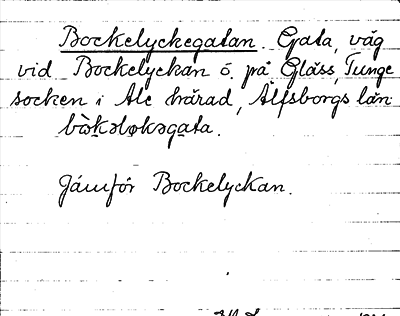 Bockelyckegatan. Gata, väg
vid Bockelyckan ö. på Gläss, Tunge
socken i Ale härad, Älfsborgs län
bò̀kəløkəgata.
Jämför Bockelyckan.